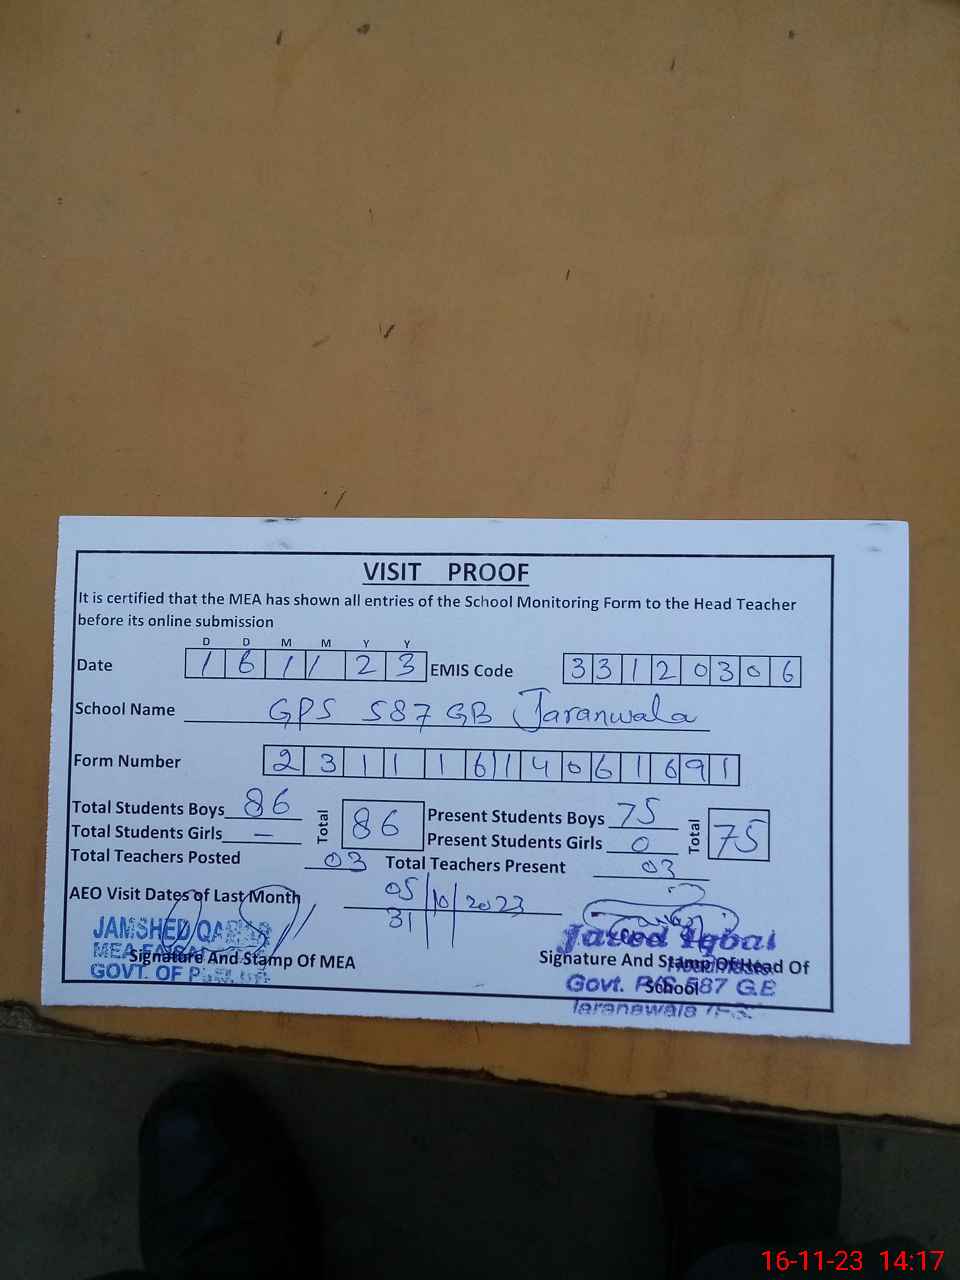 VISIT PROOF
It is certified that the MEA has shown all entries of the School Monitoring Form to the Head Teacher
before its online submission
D D M M Y Y
Date 1 6 1 1 2 3 EMIS Code 3 3 1 2 0 3 0 6
School Name GPS 587 GB Jaranwala
Form Number 2 3 1 1 1 6 1 4 0 6 1 6 9 1
Total Students Boys 86 Total 86 Present Students Boys 75 Total 75
Total Students Girls — Present Students Girls 0
Total Teachers Posted 03 Total Teachers Present 03
AEO Visit Dates of Last Month 05 10 2023
31
JAMSHED
MEA
GOVT. OF
Signature And Stamp Of MEA
Javed Iqbal
Signature And Stamp Of Head Of
School
Govt. P/S 587 G.B
16-11-23 14:17